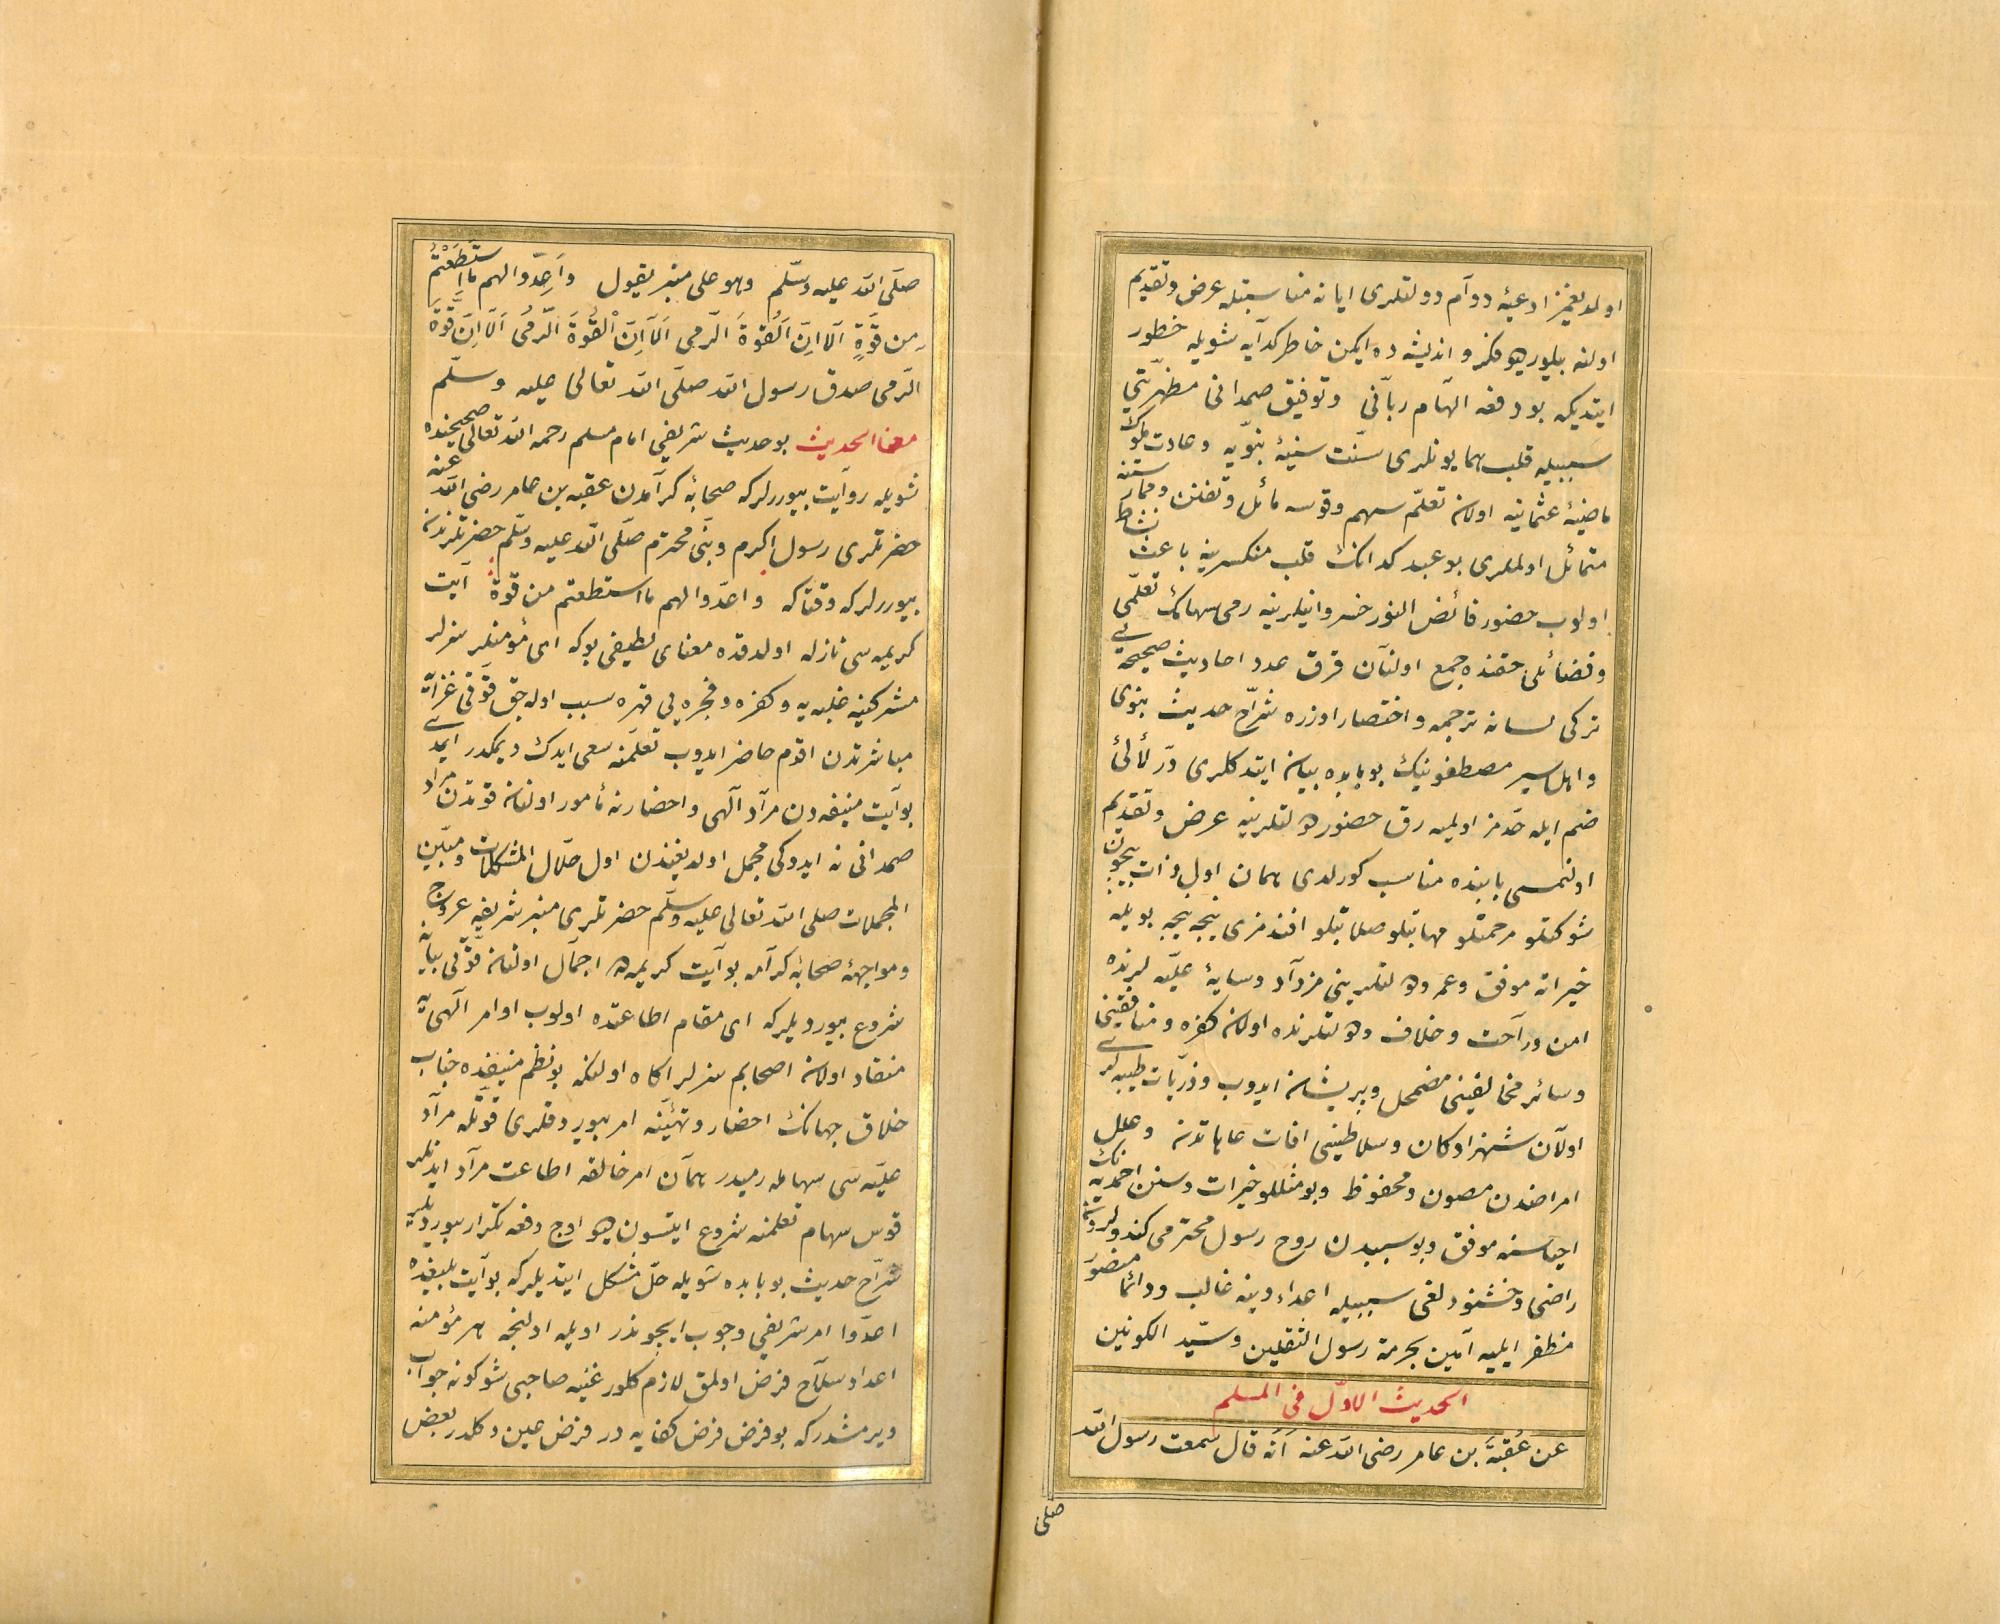 اولديغمز ادعيۀ دوآم دولتلرى ايانه مناسبتله عرض وتقديم
اولنه بيلور هو فكر و انديشه ده ايكن خاطر كدايه شويله خطور
ايتديكه بو دفعه الهام ربّانى وتوفيق صمدانى مظهريتى
سببيله قلب همايونلرى سنّت سنيۀ نبويّه وعادت ملوك
ماضيۀ عثمانيه اولان تعلّم سهم وقوسه مائل وتفنن وممارسته
متمائل اولملرى بو عبد كدانك قلب منكسرينه باعث نشاط
اولوب حضور فائض النور خسروانيلرينه رمى سهامك تعلّمى
وفضائلى حقنده جمع اولنان قرق عدد احاديث صحيحه يى
تركى لسانه ترجمه واختصار اوزره شرّاح حديث نبوى
واهل سير مصطفونيك بو بابده بيان ايتدكلرى درّ لألئ
ضم ايله حدمز اوليه رق حضور هو لتلرينه عرض وتقديم
اولنمسى بابنده مناسب كورلدى همان اول ذات بيچون
شوكتلو مرحمتلو مهابتلو صلابتلو افندمزى نيجه نيجه بويله
خيراته موفق وعمر وهو لتلرينى مزداد وسايۀ عليّه لرنده
امن وراحت وخلاف وهو لتلرنده اولان كفره ومنافقينى
وسائر مخالفينى مضمحل وپريشان ايدوب وذريّات طيبه لرى
اولان شهزادكان وسلاطينى افات عاهاتدن وعلل
امراضدن مصون ومحفوظ وبو مثللو خيرات وسنن احمديه نك
احياسنه موفق وبو سببدن روح رسول محترمى كندولردن
راضى وخشنود لغى سببيله اعداء دينه غالب ودائما منصور
مظفر ايليه آمين بحرمة رسول الثقلين وسيّد الكونين
الحديث الاوّل فى المسلم
عن عُقبةَ بن عامر رضى الله عنه أنّه قال سمعت رسول الله
صلى
صلّى الله عليه وسلّم وهو على منبر يقول وَاَعِدّوا لهم ما استَطَعْتُمْ
من قُوّةٍ اَلَا اِنّ اَلقُوةَ الرّمى اَلَا اِنّ اْلقُوةَ الّرمىُ اَلَا اِنَّ قُوّةَ
الرّمى صدق رسول الله صلّى الله تعالى عليه وسلّم
معنا الحديث بو حديث شريفى امام مسلم رحمه الله تعالى صحيحنده
شويله روايت بيوررلركه صحابۀ كرامدن عقبه بن عامر رضى الله عنه
حضرتلرى رسول اكرم ونبىّ محترم صلّى الله عليه وسلّم حضرتلرندن
بيوررلركه وقتاكه واعدّوا لهم ما استطعتم من قوة آيت
كريمه سى نازله اولدقده معناى لطيفى بوكه اى مؤمنلر سزلر
مشركينه غلبه يه وكفره وفجره يى قهره سبب اوله جق قوّتى غزايه
مباشرتدن اقوم حاضر ايدوب تعلّمنه سعى ايدك ديمكدر ايمدى
بو آيت منيفه دن مراد آلهى واحضارنه مأمور اولنان قوتدن مراد
صمدانى نه ايدوكى مجمل اولديغندن اول حلّال المشكلات ومبيّن
المجملات صلى الله تعالى عليه وسلّم حضرتلرى منبر شريفه عروج
ومواجهۀ صحابۀ كرامه بو آيت كريمه ده اجمال اولنان قوّتى بيانه
شروع بيورديلركه اى مقام اطاعتده اولوب اوامر الهى يه
منقاد اولان اصحابم سزلر اكاه اولكه بو نظم منيفده جناب
خلاق جهانك احضار وتهيئنه امر بيوردقلرى قوّتله مراد
عليّه سى سهامله رميدر همان امر خالقه اطاعت مراد ايدنلر
قوس سهام تعلمنه شروع ايتسون هو اوج دفعه تكرار بيورديلر
شرّاح حديث بو بابده شويله حلّ مشكل ايتديلركه بو آيت بليغه ده
اعدّوا امر شريفى وجوب ايچوندر اويله اولنجه هر مؤمنه
اعداد سلاح فرض اولمق لازم كلور غنيه صاحبى شو كونه جواب
ويرمشدركه بو فرض فرض كفايه در فرض عين دكلدر بعض